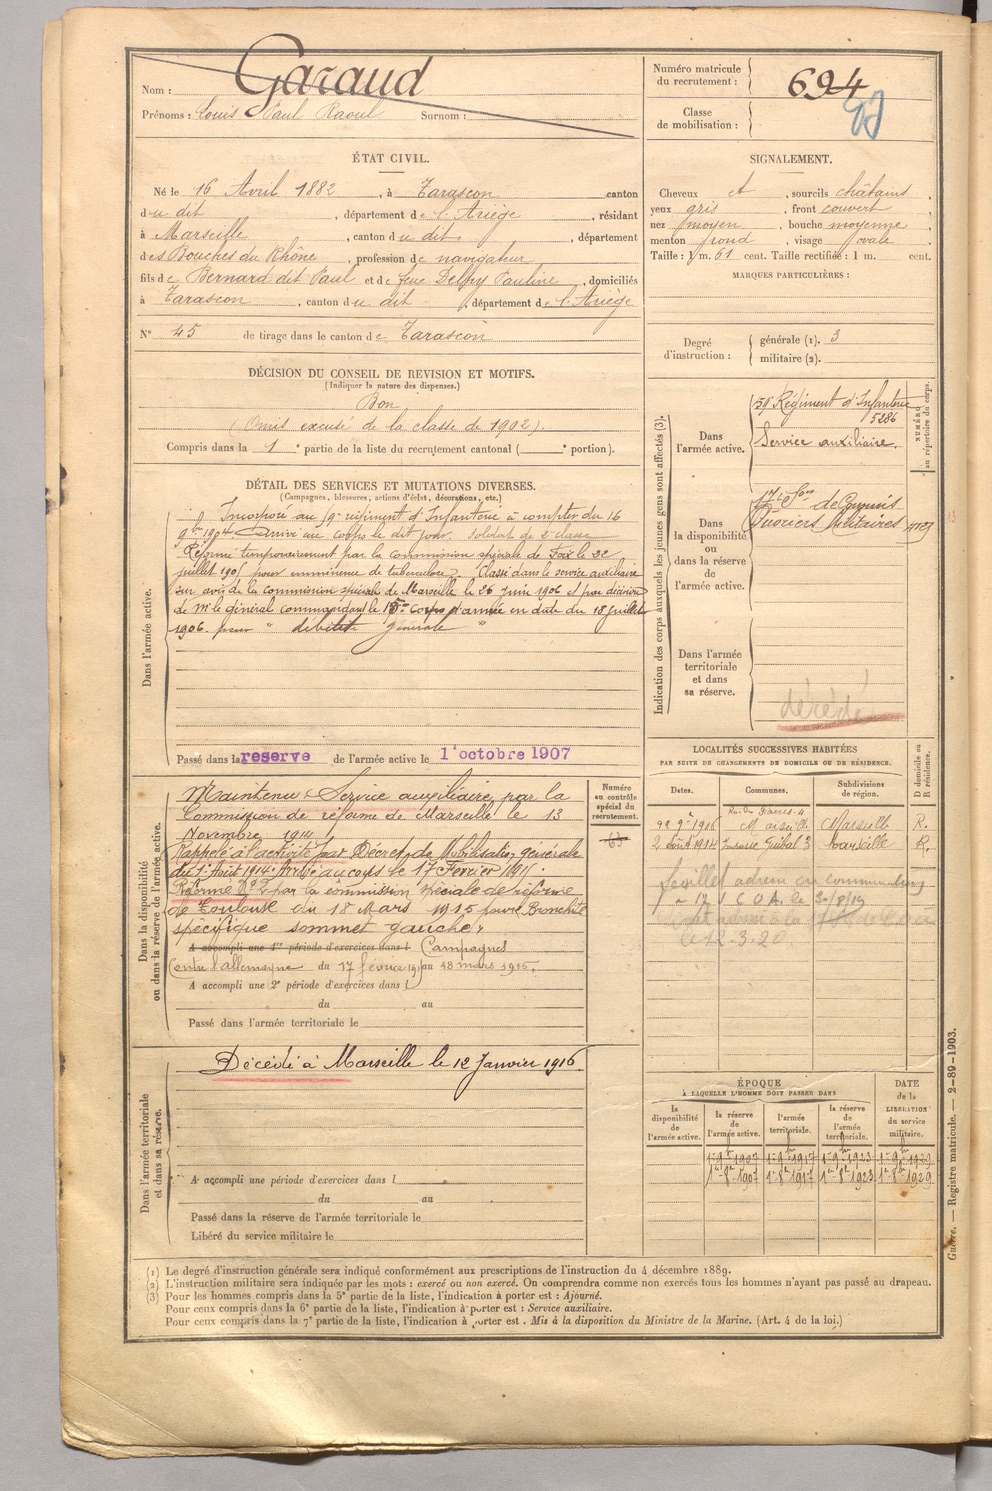 Nom : Garaud
Prénoms : Louis Paul Raoul Surnom :
Numéro matricule du recrutement : 694
Classe de mobilisation :
ÉTAT CIVIL.
Né le 16 Avril 1882, à Tarascon canton
du dit, département de l'Ariège, résidant
à Marseille, canton du dit, département
des Bouches du Rhône, profession de navigateur
fils de Bernard dit Paul et de feue Delpy Pauline, domiciliés
à Tarascon, canton du dit, département de l'Ariège
N° 45 de tirage dans le canton de Tarascon
SIGNALEMENT.
Cheveux et, sourcils châtains,
yeux gris, front couvert,
nez moyen, bouche moyenne,
menton rond, visage ovale.
Taille : 1 m. 61 cent. Taille rectifiée : 1 m. cent.
MARQUES PARTICULIÈRES :
Degré d'instruction : générale (1). 3
militaire (2).
DÉCISION DU CONSEIL DE REVISION ET MOTIFS.
(Indiquer la nature des dispenses.)
Bon
(Omis excusé de la classe de 1902).
Compris dans la 1e partie de la liste du recrutement cantonal ( e portion).
DÉTAIL DES SERVICES ET MUTATIONS DIVERSES.
(Campagnes, blessures, actions d'éclat, décorations, etc.)
Dans l'armée active.
Incorporé au 59e régiment d'Infanterie à compter du 16
9bre 1904 Arrivé au corps le dit jour. Soldat de 2e classe
Réformé temporairement par la commission spéciale de Foix le 22
juillet 1905 pour imminence de tuberculose. Classé dans le service auxiliaire
sur avis de la commission spéciale de Marseille le 26 juin 1906 et par décision
de Mr le général commandant le 15e corps d'armée en date du 18 juillet
1906. pour " débilité générale "
Passé dans la reserve de l'armée active le 1er octobre 1907
Indication des corps auxquels les jeunes gens sont affectés (3).
NUMÉRO au répertoire du corps.
Dans l'armée active.
59e Régiment d'Infanterie
5286
Service auxiliaire.
Dans la disponibilité ou dans la réserve de l'armée active.
17e Son de Commis
Ouvriers Militaires
Dans l'armée territoriale et dans sa réserve.
décédé
Dans la disponibilité ou dans la réserve de l'armée active.
Maintenu Service auxiliaire par la
Commission de réforme de Marseille le 13
Novembre 1914
Rappelé à l'activité par Décret de Mobilisation générale
du 1er Août 1914. Arrivé au corps le 17 Février 1915.
Réformé N° 2 par la commission spéciale de réforme
de Toulouse du 18 Mars 1915 pour Bronchite
spécifique sommet gauche.
A accompli une 1re période d'exercices dans l Campagnes
Contre l'allemagne du 17 février 1915 au 18 mars 1915.
A accompli une 2e période d'exercices dans l
du au
Passé dans l'armée territoriale le
Numéro au contrôle spécial du recrutement.
63
LOCALITÉS SUCCESSIVES HABITÉES
PAR SUITE DE CHANGEMENTS DE DOMICILE OU DE RÉSIDENCE.
Dates. Communes. Subdivisions de région. D domicile ou R résidence.
Marseille Marseille R.
2 Août 1914 Impasse Guibal 3 Marseille R.
feuillet
à 17 C O A. le 3/8/19
le 12.3.20
Dans l'armée territoriale et dans sa réserve.
Décédé à Marseille le 12 Janvier 1916
A accompli une période d'exercices dans l
du au
Passé dans la réserve de l'armée territoriale le
Libéré du service militaire le
ÉPOQUE
À LAQUELLE L'HOMME DOIT PASSER DANS
la disponibilité de l'armée active. la réserve de l'armée active. l'armée territoriale. la réserve de l'armée territoriale. DATE de la LIBÉRATION du service militaire.
1er 9bre 1907 1er 9bre 1917 1er 9bre 1923 1er 9bre 1929
1er 8bre 1907 1er 8bre 1917 1er 8bre 1923 1er 8bre 1929
Guerre. — Registre matricule. — 2-89-1903.
(1) Le degré d'instruction générale sera indiqué conformément aux prescriptions de l'instruction du 4 décembre 1889.
(2) L'instruction militaire sera indiquée par les mots : exercé ou non exercé. On comprendra comme non exercés tous les hommes n'ayant pas passé au drapeau.
(3) Pour les hommes compris dans la 5e partie de la liste, l'indication à porter est : Ajourné.
Pour ceux compris dans la 6e partie de la liste, l'indication à porter est : Service auxiliaire.
Pour ceux compris dans la 7e partie de la liste, l'indication à porter est. Mis à la disposition du Ministre de la Marine. (Art. 4 de la loi.)